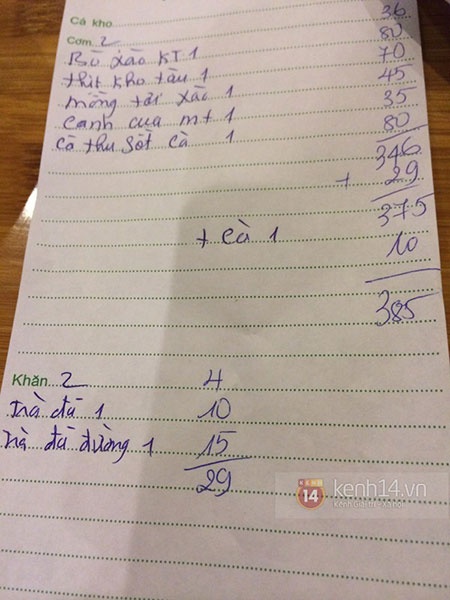 Cá kho
Cơm 2 36
Bò xào KT 1 80
thịt kho tàu 1 70
mồng tơi xào 1 45
canh cua mt 1 35
cá thu sốt cà 1 80
346
+ 29
375
+ cà 1 10
385
Khăn 2 4
trà đá 1 10
trà đá đường 1 15
29
KENH 14 kenh14.vn